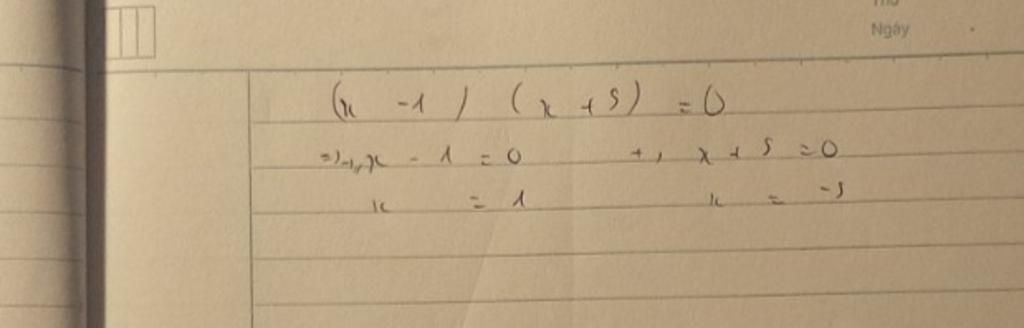 Ngày
(x - 1) (x + 5) = 0
=> +, x - 1 = 0 +, x + 5 = 0
x = 1 x = -5